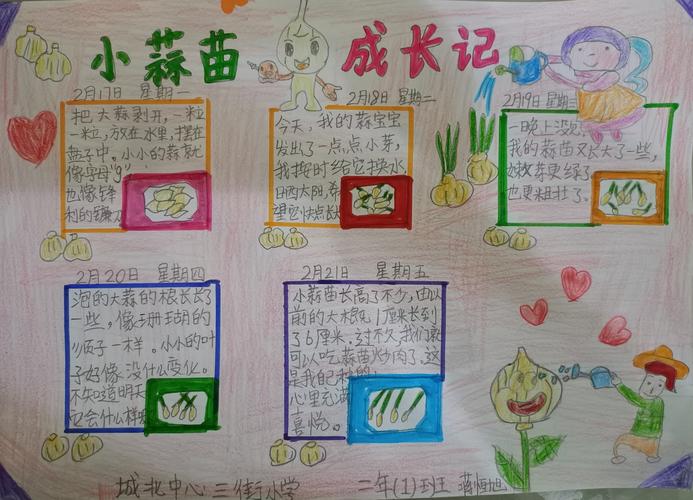 小蒜苗 成长记
2月17日 星期一
把大蒜剥开,一粒
一粒,放在水里,摆在
盘子中。小小的蒜就
像字母"9",
也像锋
利的镰刀
2月18日 星期二
今天,我的蒜宝宝
发出了一点点小芽,
我按时给它换水
晒太阳,希
望它快点
2月19日 星期三
一晚上没见,
我的蒜苗又长大了一些,
嫩芽更绿了
也更粗壮了。
2月20日 星期四
泡的大蒜的根长长了
一些,像珊瑚的
须子一样。小小的叶
子好像没什么变化。
不知道明天
它会什么样呢
2月21日 星期五
小蒜苗长高了不少,由以
前的大概1厘米长到
了6厘米,过不久我们就
可以吃蒜苗炒肉了,这
是我自己种的,
心里充满
喜悦。
城北中心三街小学 二年(1)班